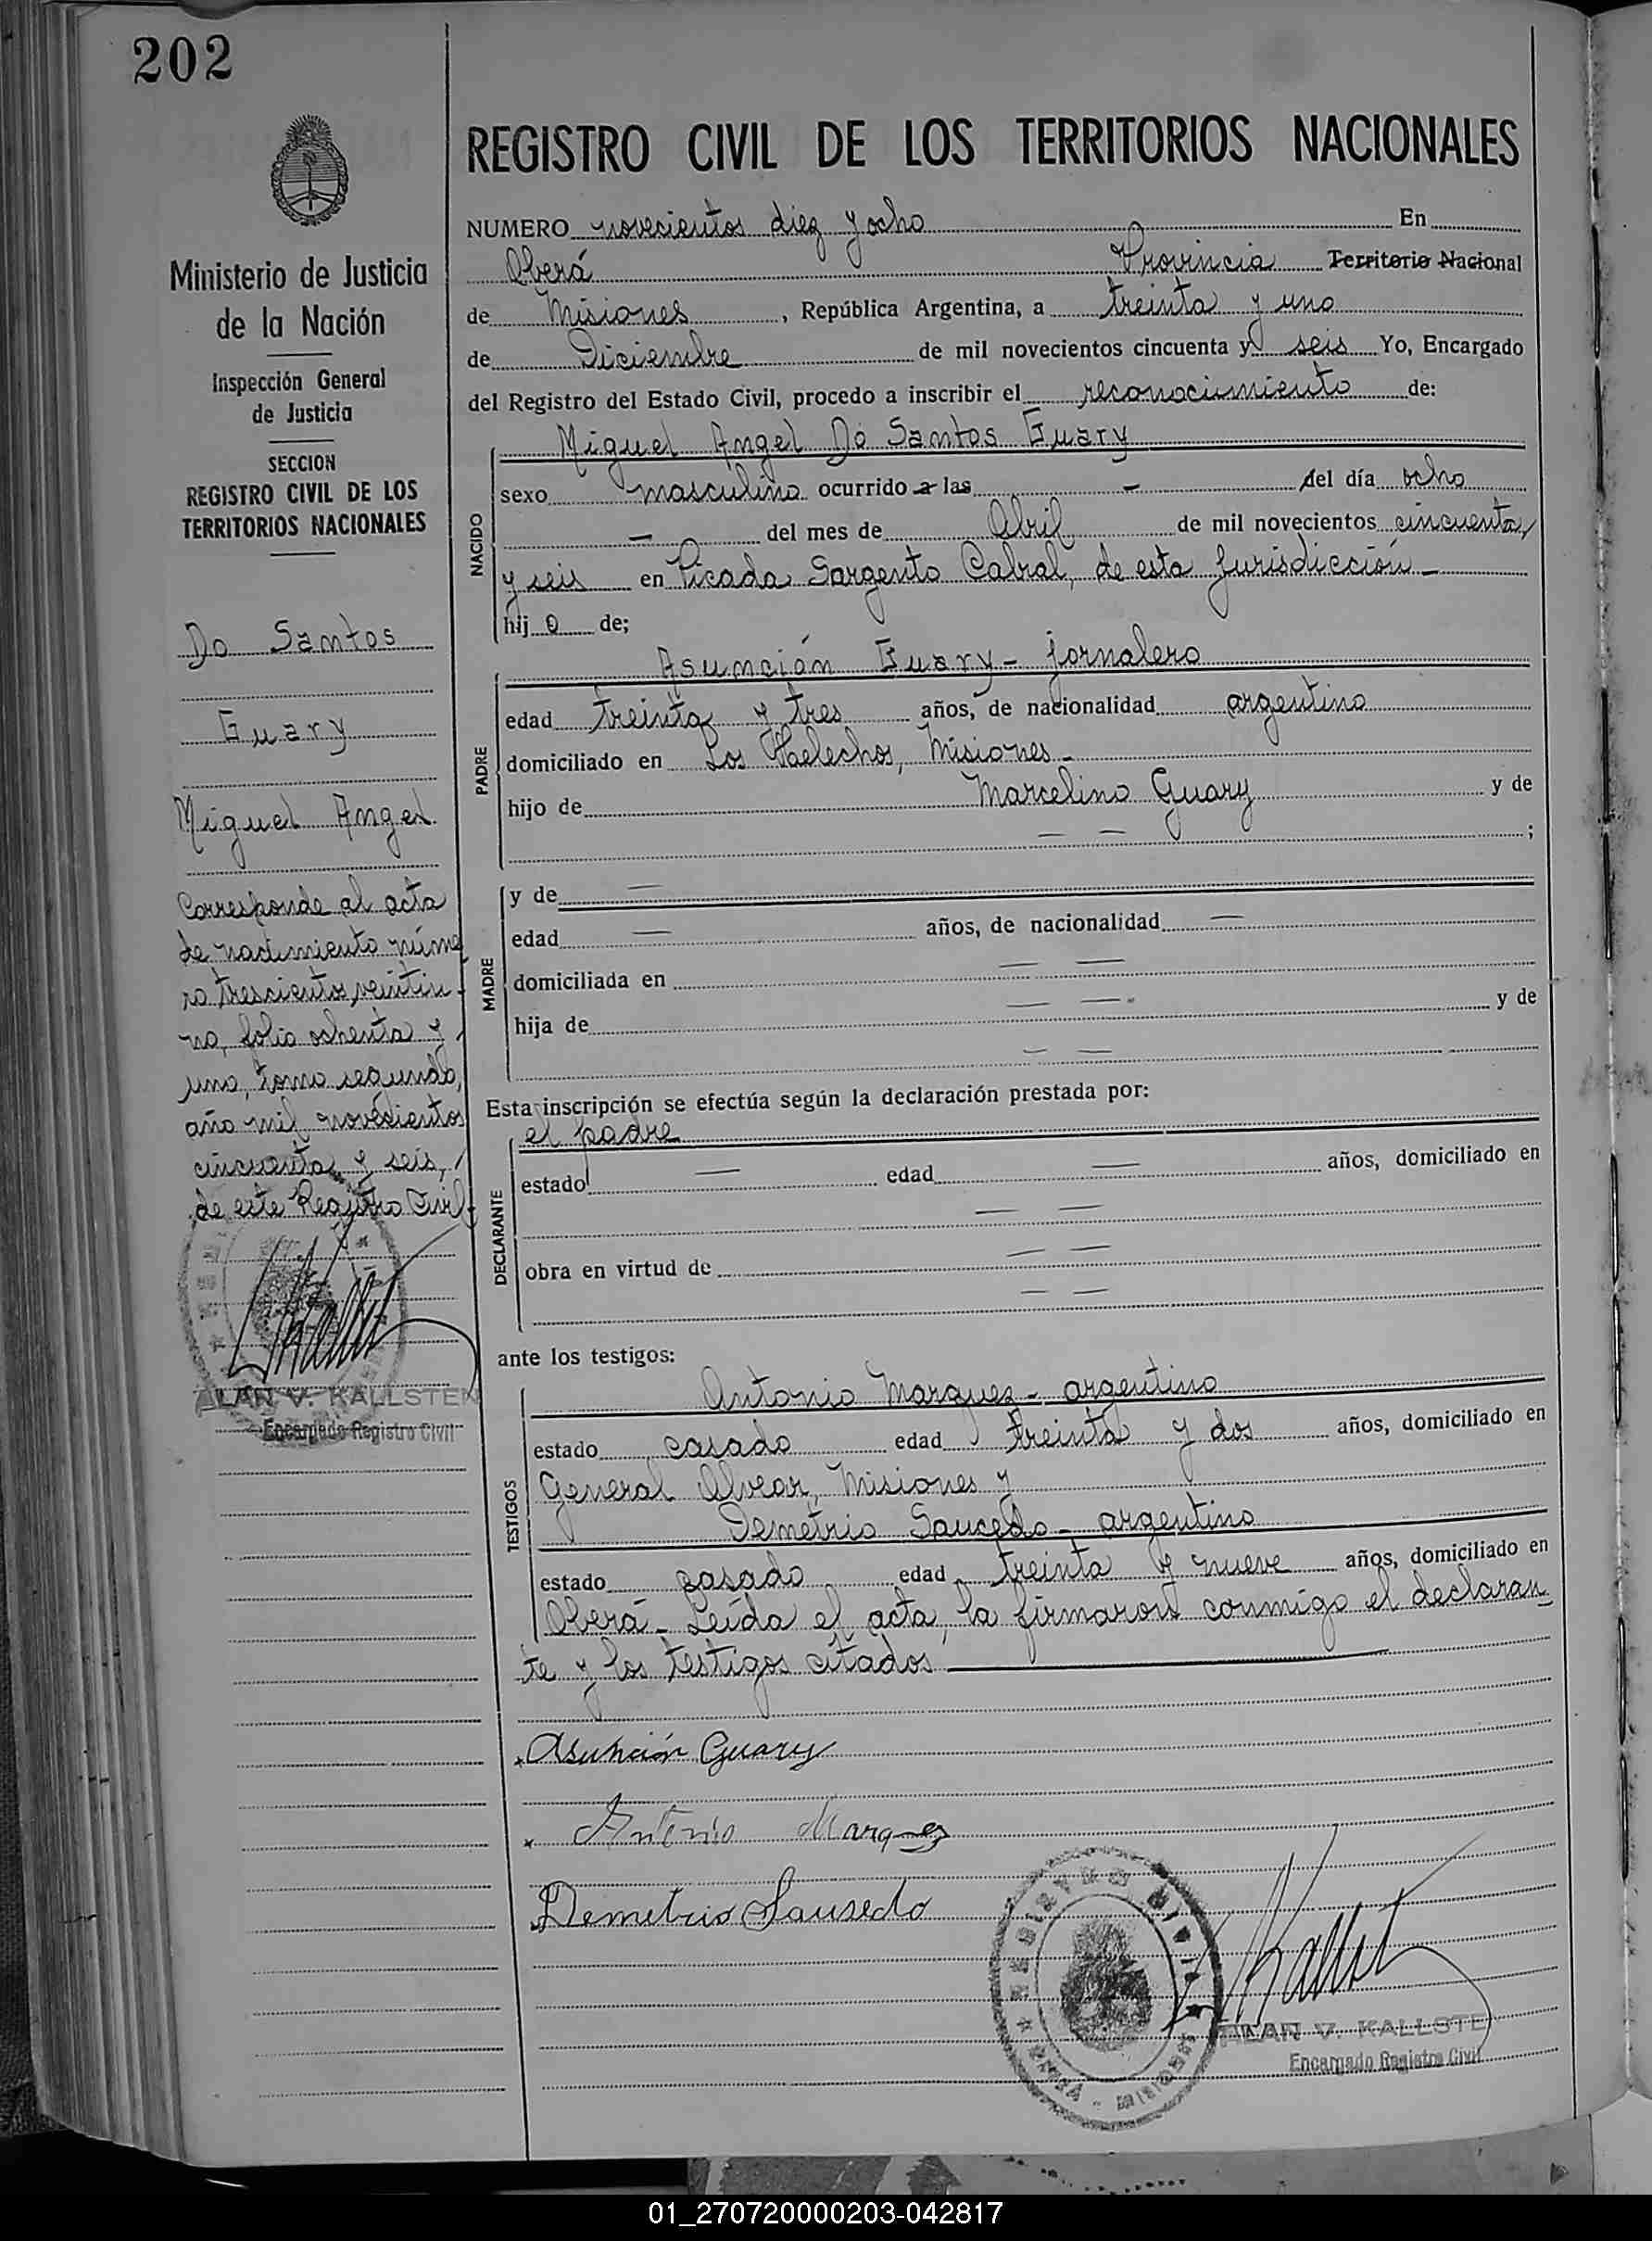 202
Ministerio de Justicia
de la Nación
Inspección General
de Justicia
SECCION
REGISTRO CIVIL DE LOS
TERRITORIOS NACIONALES
Do Santos
Guary
Miguel Angel
Corresponde al acta
de nacimiento núme
ro trescientos veintiu-
no, folio ochenta y
uno, tomo segundo,
año mil novecientos
cincuenta y seis,
de este Registro Civil
ALAN V. KALLSTEN
Encargado Registro Civil
REGISTRO CIVIL DE LOS TERRITORIOS NACIONALES
NUMERO novecientos diez y ocho En
Oberá Provincia Territorio Nacional
de Misiones, República Argentina, a treinta y uno
de Diciembre de mil novecientos cincuenta y seis Yo, Encargado
del Registro del Estado Civil, procedo a inscribir el reconocimiento de:
Miguel Angel Do Santos Guary
NACIDO
sexo masculino ocurrido a las - del día ocho
- del mes de Abril de mil novecientos cincuenta
y seis en Picada Sargento Cabral, de esta Jurisdicción -
hij o de;
PADRE
Asunción Guary - jornalero
edad treinta y tres años, de nacionalidad argentino
domiciliado en Los Helechos, Misiones -
hijo de Marcelino Guary y de
— — ;
MADRE
y de —
edad — años, de nacionalidad —
domiciliada en — —
hija de — — y de
— —
Esta inscripción se efectúa según la declaración prestada por:
DECLARANTE
el padre
estado — edad — años, domiciliado en
— —
obra en virtud de — —
— —
ante los testigos:
TESTIGOS
Antonio Marquez - argentino
estado casado edad treinta y dos años, domiciliado en
General Alvear, Misiones y
Demetrio Saucedo - argentino
estado casado edad treinta y nueve años, domiciliado en
Oberá - Leída el acta, la firmaron conmigo el declaran
te y los testigos citados
Asunción Guary
Antonio Marquez
Demetrio Sausedo
REGISTRO CIVIL
ALAN V. KALLSTE
Encargado Registro Civil
01_270720000203-042817